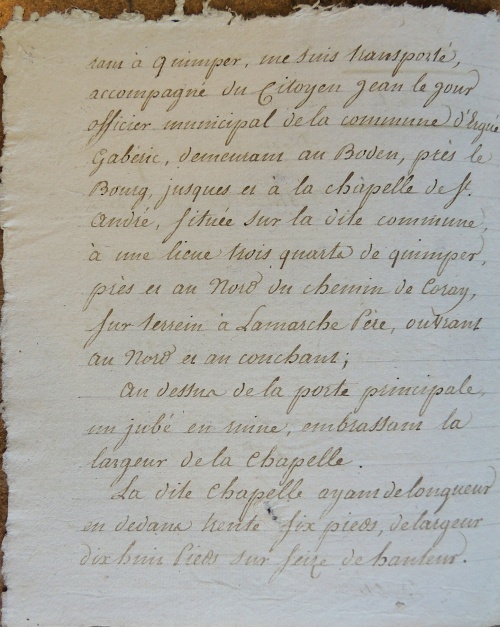 rant à quimper, me suis transporté,
accompagné du Citoyen jean le gour
officier municipal de la commune d'Ergué
Gaberic, demeurant au Boden, près le
Bourg, jusques et à la chapelle de St.
André, située sur la dite commune,
à une lieue trois quarts de quimper,
près et au Nord du chemin de Coray,
sur terrein à Lamarche Père, ouvrant
au Nord et au couchant;
Au dessus de la porte principale,
un jubé en ruine, embrassant la
largeur de la Chapelle.
La dite Chapelle ayant de longueur
en dedans trente six pieds, de largeur
dix huit Pieds sur seize de hauteur.